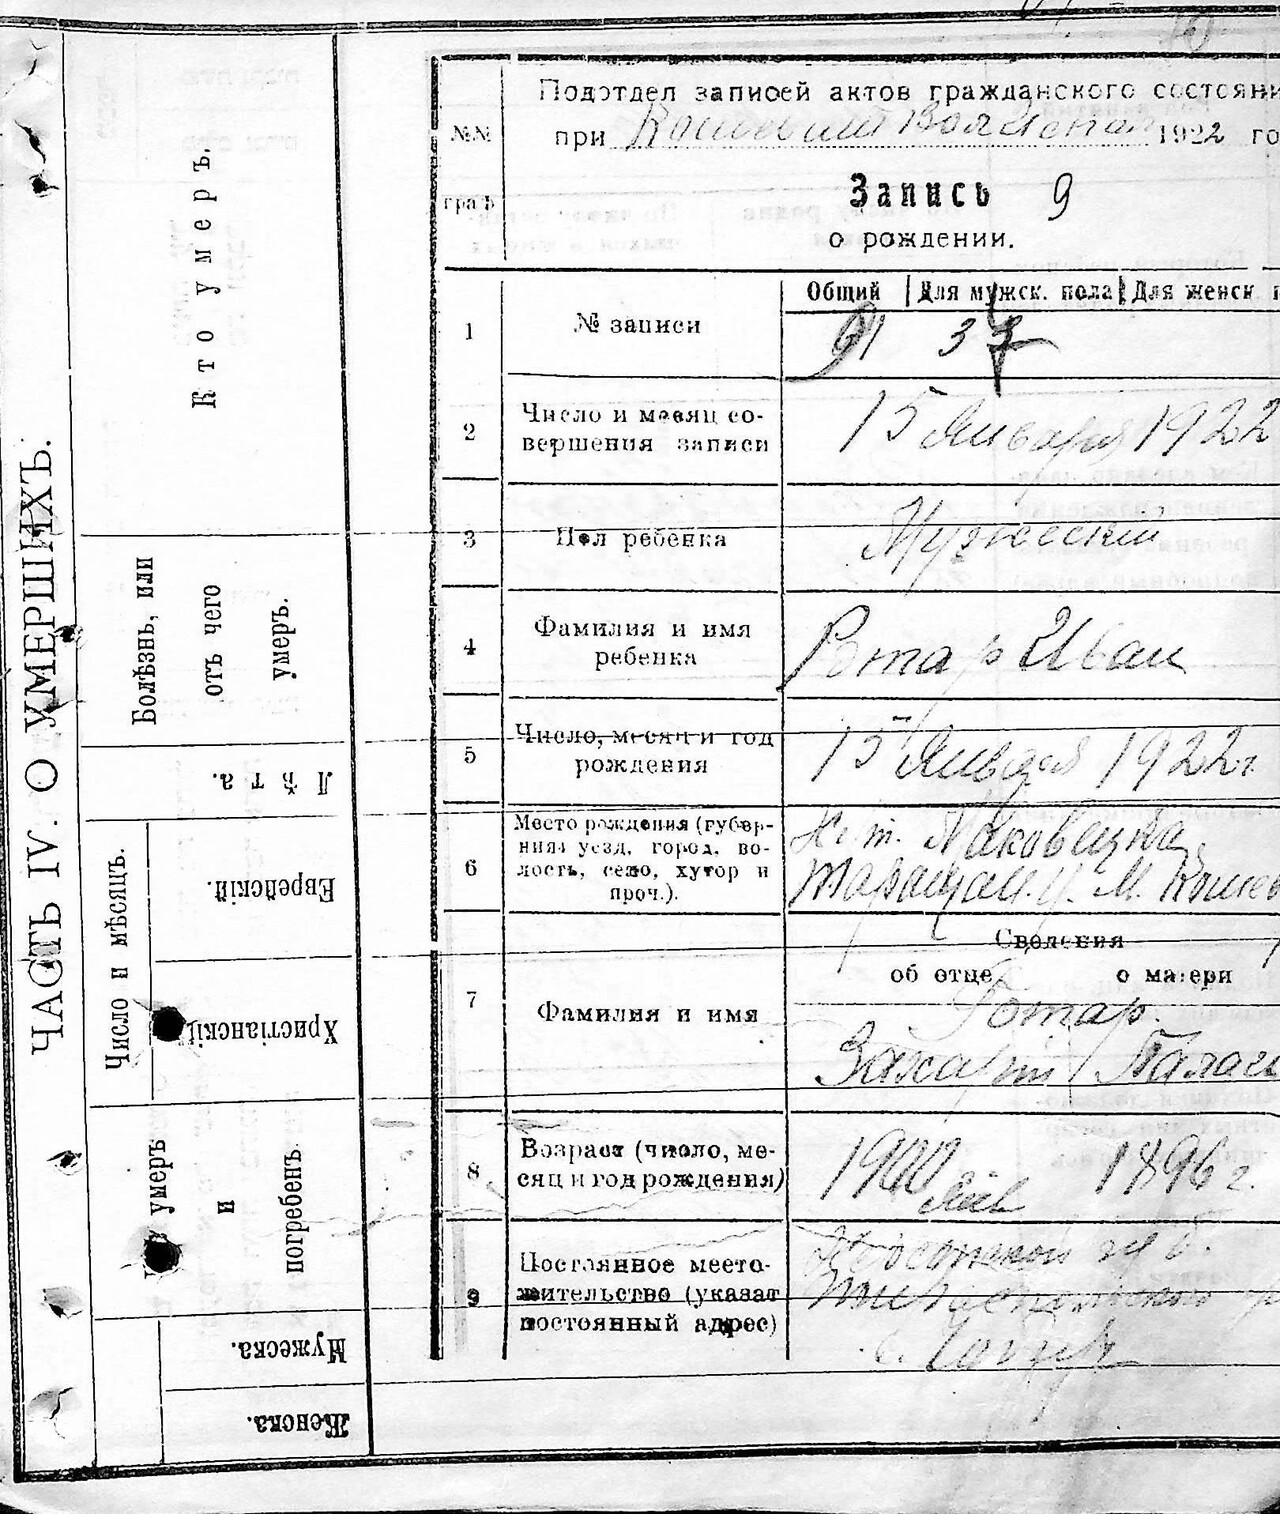 ЧАСТЬ IV. О УМЕРШИХЪ.
Кто умеръ.
Болѣзнь, или
отъ чего
умеръ.
Лѣта.
Число и мѣсяцъ.
Еврейскій.
Христіанскій
умеръ
и
погребенъ
Мужеска.
Женска.
Подотдел записей актов гражданского состояни
№№ при 1922 го
граѣ
Запись 9
о рождении.
Общий Для мужск. пола Для женск
1 № записи 91 37
2 Число и месяц со-
вершения записи
15 Января 1922
3 Пол ребенка Мужеский
4 Фамилия и имя
ребенка
Ротар Иван
5 Число, месяц и год
рождения
15 Января 1922 г.
6 Место рождения (губер-
ния, уезд, город, во-
лость, село, хутор и
проч.).
Таращан. у. М. Кошев
Сведения
об отце о матери
7 Фамилия и имя
Ротар
Захарий Палаг
8 Возраст (число, ме-
сяц и год рождения)
1900 1896 г.
9 Постоянное место-
жительство (указат
постоянный адрес)
Тираспольского
с.